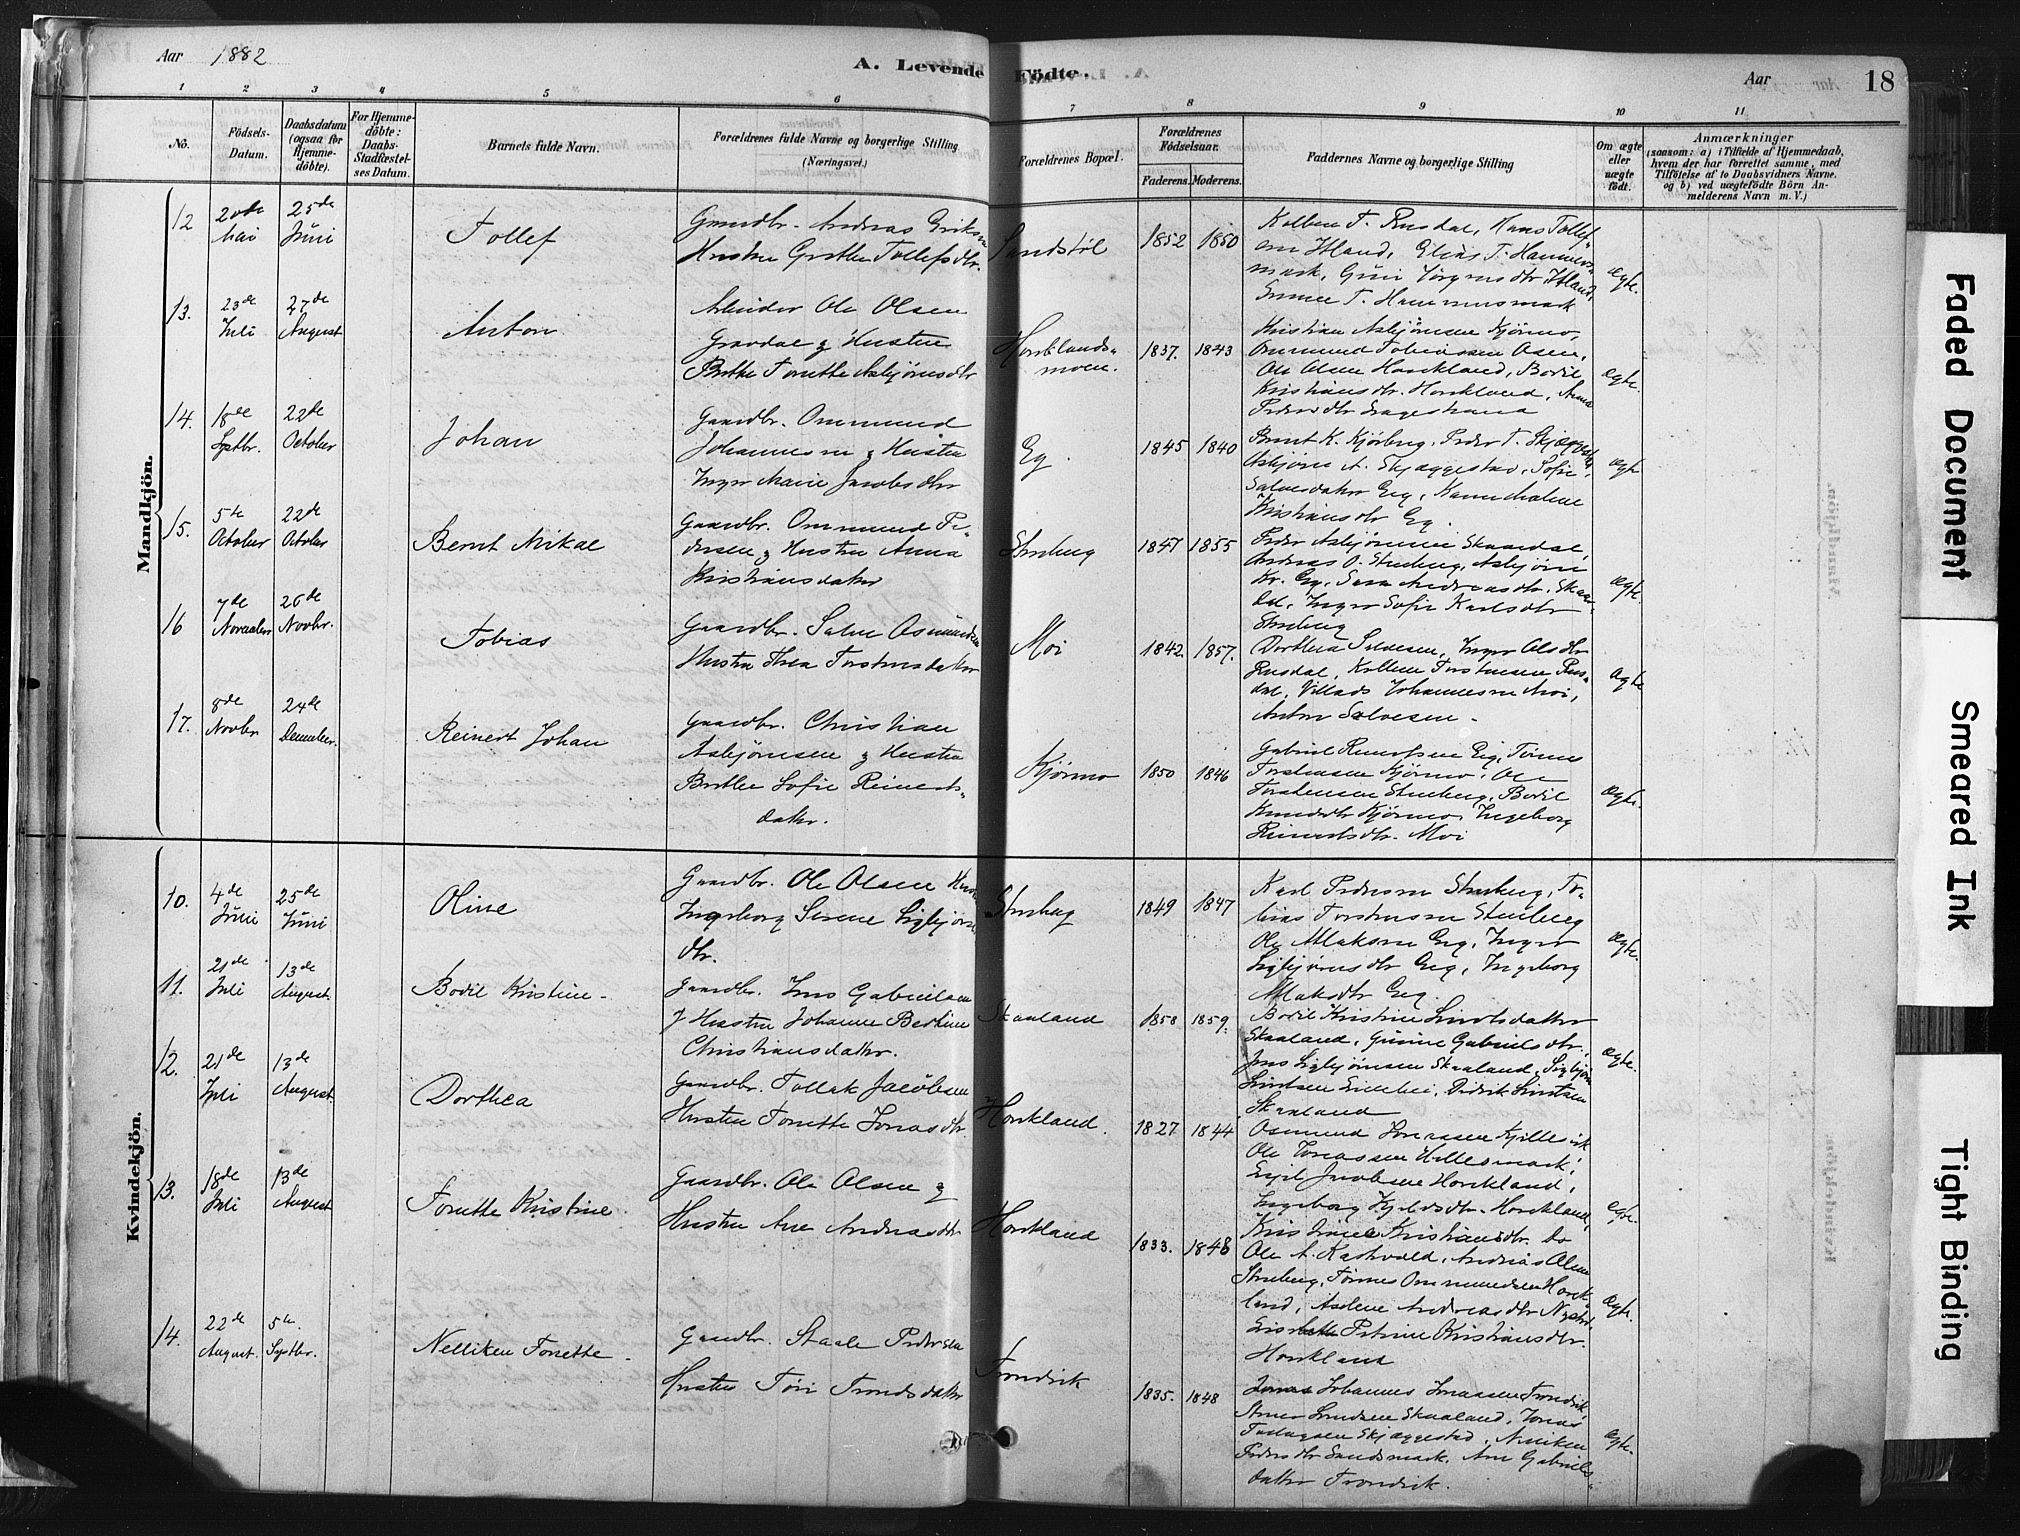 Aar 1882
A. Levende Födte.
Aar
18
1 2 3 4 5 6 7 8 9 10 11
No.
Födsels-
Datum.
Daabsdatum
(ogsaa for
Hjemme-
döbte).
For Hjemme-
döbte:
Daabs-
Stadfæstel-
ses Datum.
Barnets fulde Navn.
Forældrenes fulde Navne og borgerlige Stilling
(Næringsvei.)
Forældrenes Bopæl.
Forældrenes
Födselsaar.
Faderens. Moderens.
Faddernes Navne og borgerlige Stilling
Om ægte
eller
uægte
födt.
Anmærkninger
(saasom: a) i Tilfælde af Hjemmedaab,
hvem der har forrettet samme, med
Tilföielse af to Daabsvidners Navne.
og b) ved uægtefödte Börn An-
melderens Navn m. V.)
Mandkjön.
12
20de
Mai
25de
Juni
Tollef
Gaardbr. Andreas Eriksen
Hustru Grethe Tollefsdtr.
Sandstöl
1852 1850
Kolben T. Rusdal, Hans Tollef-
sen
Ægte.
13.
23de
Juli
27de
August
Anton
Arbeider Ole Olsen
Gravdal & Hustru
Berthe Tonette Asbjörnsdtr
Hovklands-
moen.
1837. 1843
Kristian Asbjörnsen Kjörmo,
Ommund Tobiassen Osen,
Ole Olsen Hovkland, Bodil
Kristiansdtr. Hovkland, Anna
Pedersdtr
Ægte.
14.
18de
Septbr.
22de
October
Johan
Gaardbr. Ommund
Johannesen & Hustru
Inger Marie Jacobsdtr
Eg.
1845 1840
Bernt K. Kjörberg, Peder T. Skjæggestad,
Asbjörn A. Skjæggestad, Sofie
Salvesdatter Eeg, Karen Malene
Kristiansdtr Eg.
Ægte
15.
5te
October
22de
October
Bernt Mikal
Gaardbr. Ommund Pe-
dersen & Hustru Anna
Kristiansdatter
Stenberg
1847 1855
Peder Asbjörnsen Skaardal,
Andreas O. Stenberg, Asbjörn
Kr. Eg, Sara Andreasdtr. Skaar-
dal, Inger Sofie Karlsdtr
Stenberg
Ægte.
16
7de
November
26de
Novbr.
Tobias
Gaardbr. Salve Osmundsen
Hustru Thea Torstensdatter
Moi
1842. 1857.
Dorthea Salvesen, Inger Olsdtr
Rusdal, Kolben Torstensen Rus-
dal, Villads Johannesen Moi,
Anton Salvesen.
Ægte
17.
8de
Novbr
24de
December.
Reinert Johan
Gaardbr. Christian
Asbjörnsen & Hustru
Berthe Sofie Reinerts-
datter.
Kjörmo
1850 1846
Gabriel Reinertsen Eig, Tönnes
Torstensen Kjörmo, Ole
Torstensen Stenberg, Bodil
Knudsdtr Kjörmo, Ingeborg
Reinertsdtr. Moi
Ægte.
Kvindekjön.
10.
4de
Juni
25de
Juni
Oline
Gaardbr. Ole Olsen Hustru
Ingeborg Serene Sigbjörns-
dtr.
Stenberg
1849 1847
Karl Pedersen Stenberg, To-
bias Torstensen Stenberg
Ole Aslaksen Eeg, Inger
Sigbjörnsdtr Eeg, Ingeborg
Aslaksdtr Eeg.
Ægte.
11.
21de
Juli
13de
August.
Bodil Kristine
Gaardbr. Jens Gabrielsen
& Hustru Johanne Bertine
Christiansdatter.
Skaaland
1858 1859.
Bodil Kristine Sivertsdatter
Skaaland, Gurine Gabrielsdtr.,
Jens Sigbjörnsen Skaaland, Sigbjörn
Skaaland
Ægte.
12.
21de
Juli
13de
August.
Dorthea
Gaardbr. Tollak Jacobsen
Hustru Tonette Jonasdtr.
Hovkland.
1827 1844
Osmund Jonassen
Ole Jonassen Hellesmark,
Eigil Jacobsen Hovkland,
Ingeborg Hovkland,
Kristiansdtr. Do
Ægte.
13.
18de
Juli
13de
August
Tonette Kristine
Gaardbr. Ole Olsen &
Hustru Ane Andreasdtr
Hovkland
1833. 1848
Ole A. Andreas Olsen
Stenberg, Tönnes Ommundsen Hovk-
land, Aslene Andreasdtr
Lisebethe Petrine Kristiansdtr.
Hovkland
Ægte.
14.
22de
August.
5te.
Septbr.
Nelliken Tonette
Gaardbr. Staale Pedersen
Hustru Tori Trondsdatter
Trondvik
1835. 1848
Johannes Jonassen Trondvik
Skaaland, Jonas
Skjæggestad, Nelliken
Pedersdtr Sandsmark, Ane Gabriels-
datter Trondvik.
Ægte.
Faded Document
Smeared Ink
Tight Binding